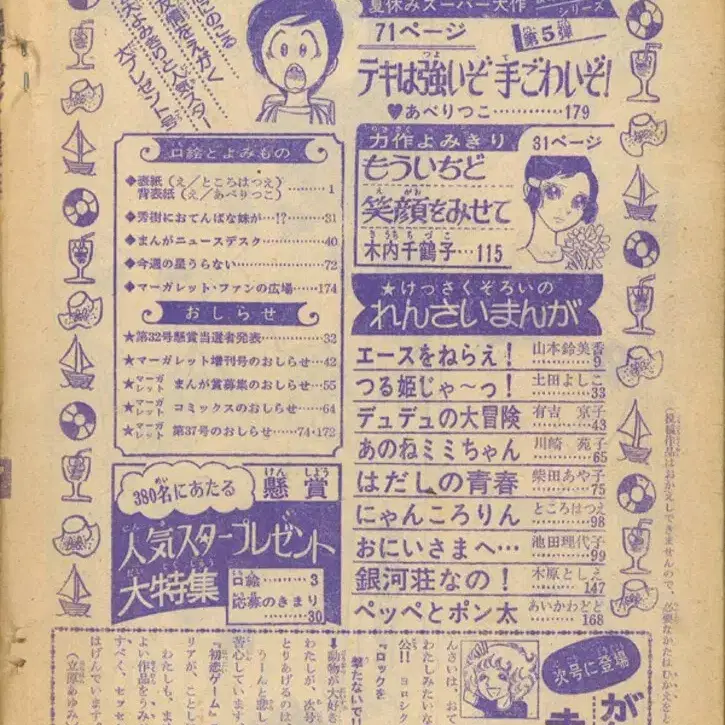 夏休みスーパー大作
シリーズ
71ページ
第5弾
テキは強いぞ 手ごわいぞ!
♥あべりつこ…………179
力作よみきり
31ページ
もういちど
笑顔をみせて
木内千鶴子…115
★けっさくぞろいの
れんさいまんが
エースをねらえ! 山本鈴美香 9
つる姫じゃ〜っ! 土田よしこ 33
デュデュの大冒険 有吉 京子 43
あのねミミちゃん 川崎 苑子 65
はだしの青春 柴田あや子 75
にゃんころりん ところはつえ 98
おにいさまへ… 池田理代子 99
銀河荘なの! 木原としえ 147
ペッペとポン太 あいかわどど 168
口絵とよみもの
◆表紙(え/ところはつえ)
背表紙(え/あべりつこ)………1
◆秀樹におてんばな妹が…!?………31
◆まんがニュースデスク…………40
◆今週の星うらない…………72
◆マーガレット・ファンの広場……174
おしらせ
★第32号懸賞当選者発表…………32
★マーガレット増刊号のおしらせ…42
★マーガレット まんが賞募集のおしらせ…55
★マーガレット コミックスのおしらせ……64
★マーガレット 第37号のおしらせ……74・172
380名にあたる 懸賞
人気スタープレゼント
大特集
口絵…………3
応募のきまり
…………30
次号に登場
『ロックを
公!! ヨロシク
わたしみたいな
んさいは、おて
動物が大好き
わたしが、次号
とりあげるのは
うーんと悲し
苦心しています。
『初恋ゲーム』
リアが、ことし
わたしも、ま
よい作品をうみ
すべく、セッセ
はげんでいます。
(立原あゆみ)